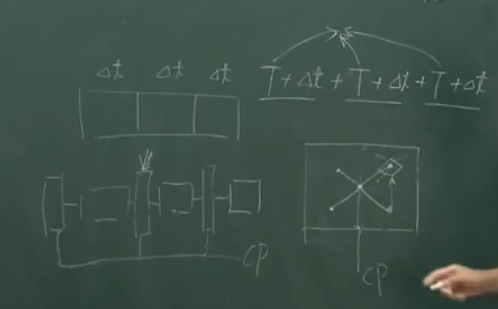 Δt Δt Δt
T + Δt + T + Δt + T + Δt
CP
CP